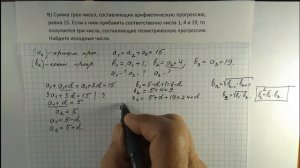 4) Сумма трех чисел, составляющих арифметическую прогрессию,
равна 15. Если к ним прибавить соответственно числа 1, 4 и 19, то
получатся три числа, составляющие геометрическую прогрессию.
Найдите исходные числа.
a₁+a₂+a₃=15
b₁=a₁+1, b₂=a₂+4, b₃=a₃+19.
a₁-? a₂-? a₃-?
a₁+a₁+d+a₁+2d=15
3a₁+3d=15 |:3
a₁+d=5
a₂=5
a₁=5-d
a₃=5+d
b₁=5-d+1=6-d
b₂=5+4=9
b₃=5+d+19=24+d